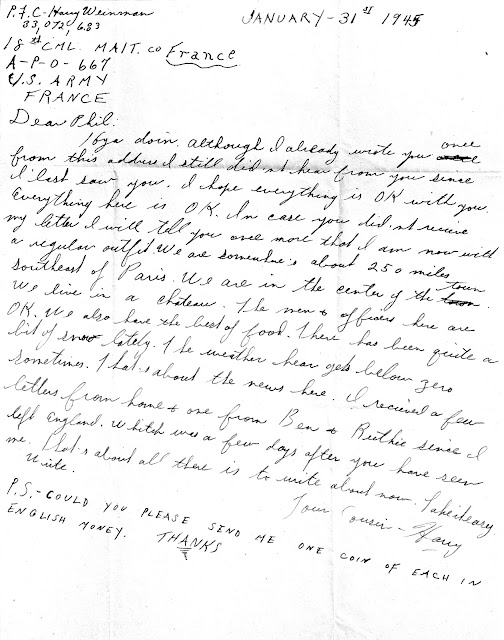 P.F.C- Harry Weinman
33,072,683
JANUARY - 31 st 1945
18 st CML. MAIT. co France
A-P-O- 667
U.S. ARMY
FRANCE
Dear Phil:
Hya doin. although I already wrote you once
from this address I still did,nt hear from you since
I last saw you. I hope everything is OK with you.
Everything here is OK. In case you did,nt receive
my letter I will tell you once more that I am now with
a regular outfit. We are somewhere about 250 miles
southeast of Paris. We are in the center of the town.
We live in a chateau. The men & officers here are
OK. We also have the best of food. There has been quite a
bit of snow lately. The weather hear gets below zero
sometimes. That,s about the news here. I recieved a few
letters from home & one from Ben & Ruthie since I
left England. Whitch was a few days after you have seen
me. That,s about all there is to write about now. Takeiteasy.
Write.
Your Cousin - Harry
P.S. - COULD YOU PLEASE SEND ME ONE COIN OF EACH IN
ENGLISH MONEY. THANKS